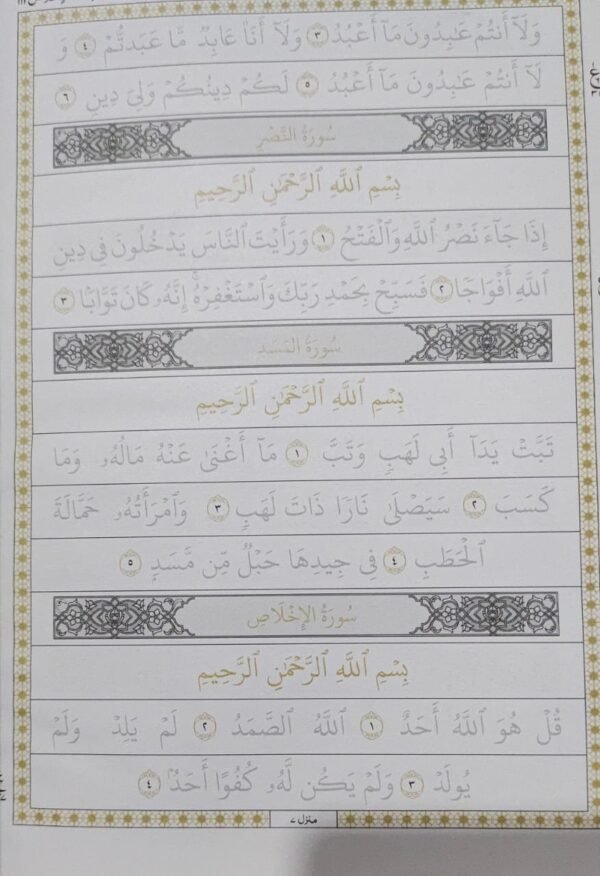 وَلَآ أَنتُمْ عَٰبِدُونَ مَآ أَعْبُدُ ٣ وَلَآ أَنَا۠ عَابِدٌ مَّا عَبَدتُّمْ ٤ وَ
لَآ أَنتُمْ عَٰبِدُونَ مَآ أَعْبُدُ ٥ لَكُمْ دِينُكُمْ وَلِىَ دِينِ ٦
سُورَةُ النَّصْرِ
بِسْمِ ٱللَّهِ ٱلرَّحْمَٰنِ ٱلرَّحِيمِ
إِذَا جَآءَ نَصْرُ ٱللَّهِ وَٱلْفَتْحُ ١ وَرَأَيْتَ ٱلنَّاسَ يَدْخُلُونَ فِى دِينِ
ٱللَّهِ أَفْوَاجًا ٢ فَسَبِّحْ بِحَمْدِ رَبِّكَ وَٱسْتَغْفِرْهُ ۚ إِنَّهُۥ كَانَ تَوَّابًۢا ٣
سُورَةُ المَسَدِ
بِسْمِ ٱللَّهِ ٱلرَّحْمَٰنِ ٱلرَّحِيمِ
تَبَّتْ يَدَآ أَبِى لَهَبٍ وَتَبَّ ١ مَآ أَغْنَىٰ عَنْهُ مَالُهُۥ وَمَا
كَسَبَ ٢ سَيَصْلَىٰ نَارًا ذَاتَ لَهَبٍ ٣ وَٱمْرَأَتُهُۥ حَمَّالَةَ
ٱلْحَطَبِ ٤ فِى جِيدِهَا حَبْلٌ مِّن مَّسَدٍۭ ٥
سُورَةُ الإِخْلَاصِ
بِسْمِ ٱللَّهِ ٱلرَّحْمَٰنِ ٱلرَّحِيمِ
قُلْ هُوَ ٱللَّهُ أَحَدٌ ١ ٱللَّهُ ٱلصَّمَدُ ٢ لَمْ يَلِدْ وَلَمْ
يُولَدْ ٣ وَلَمْ يَكُن لَّهُۥ كُفُوًا أَحَدٌۢ ٤
منزل ٧